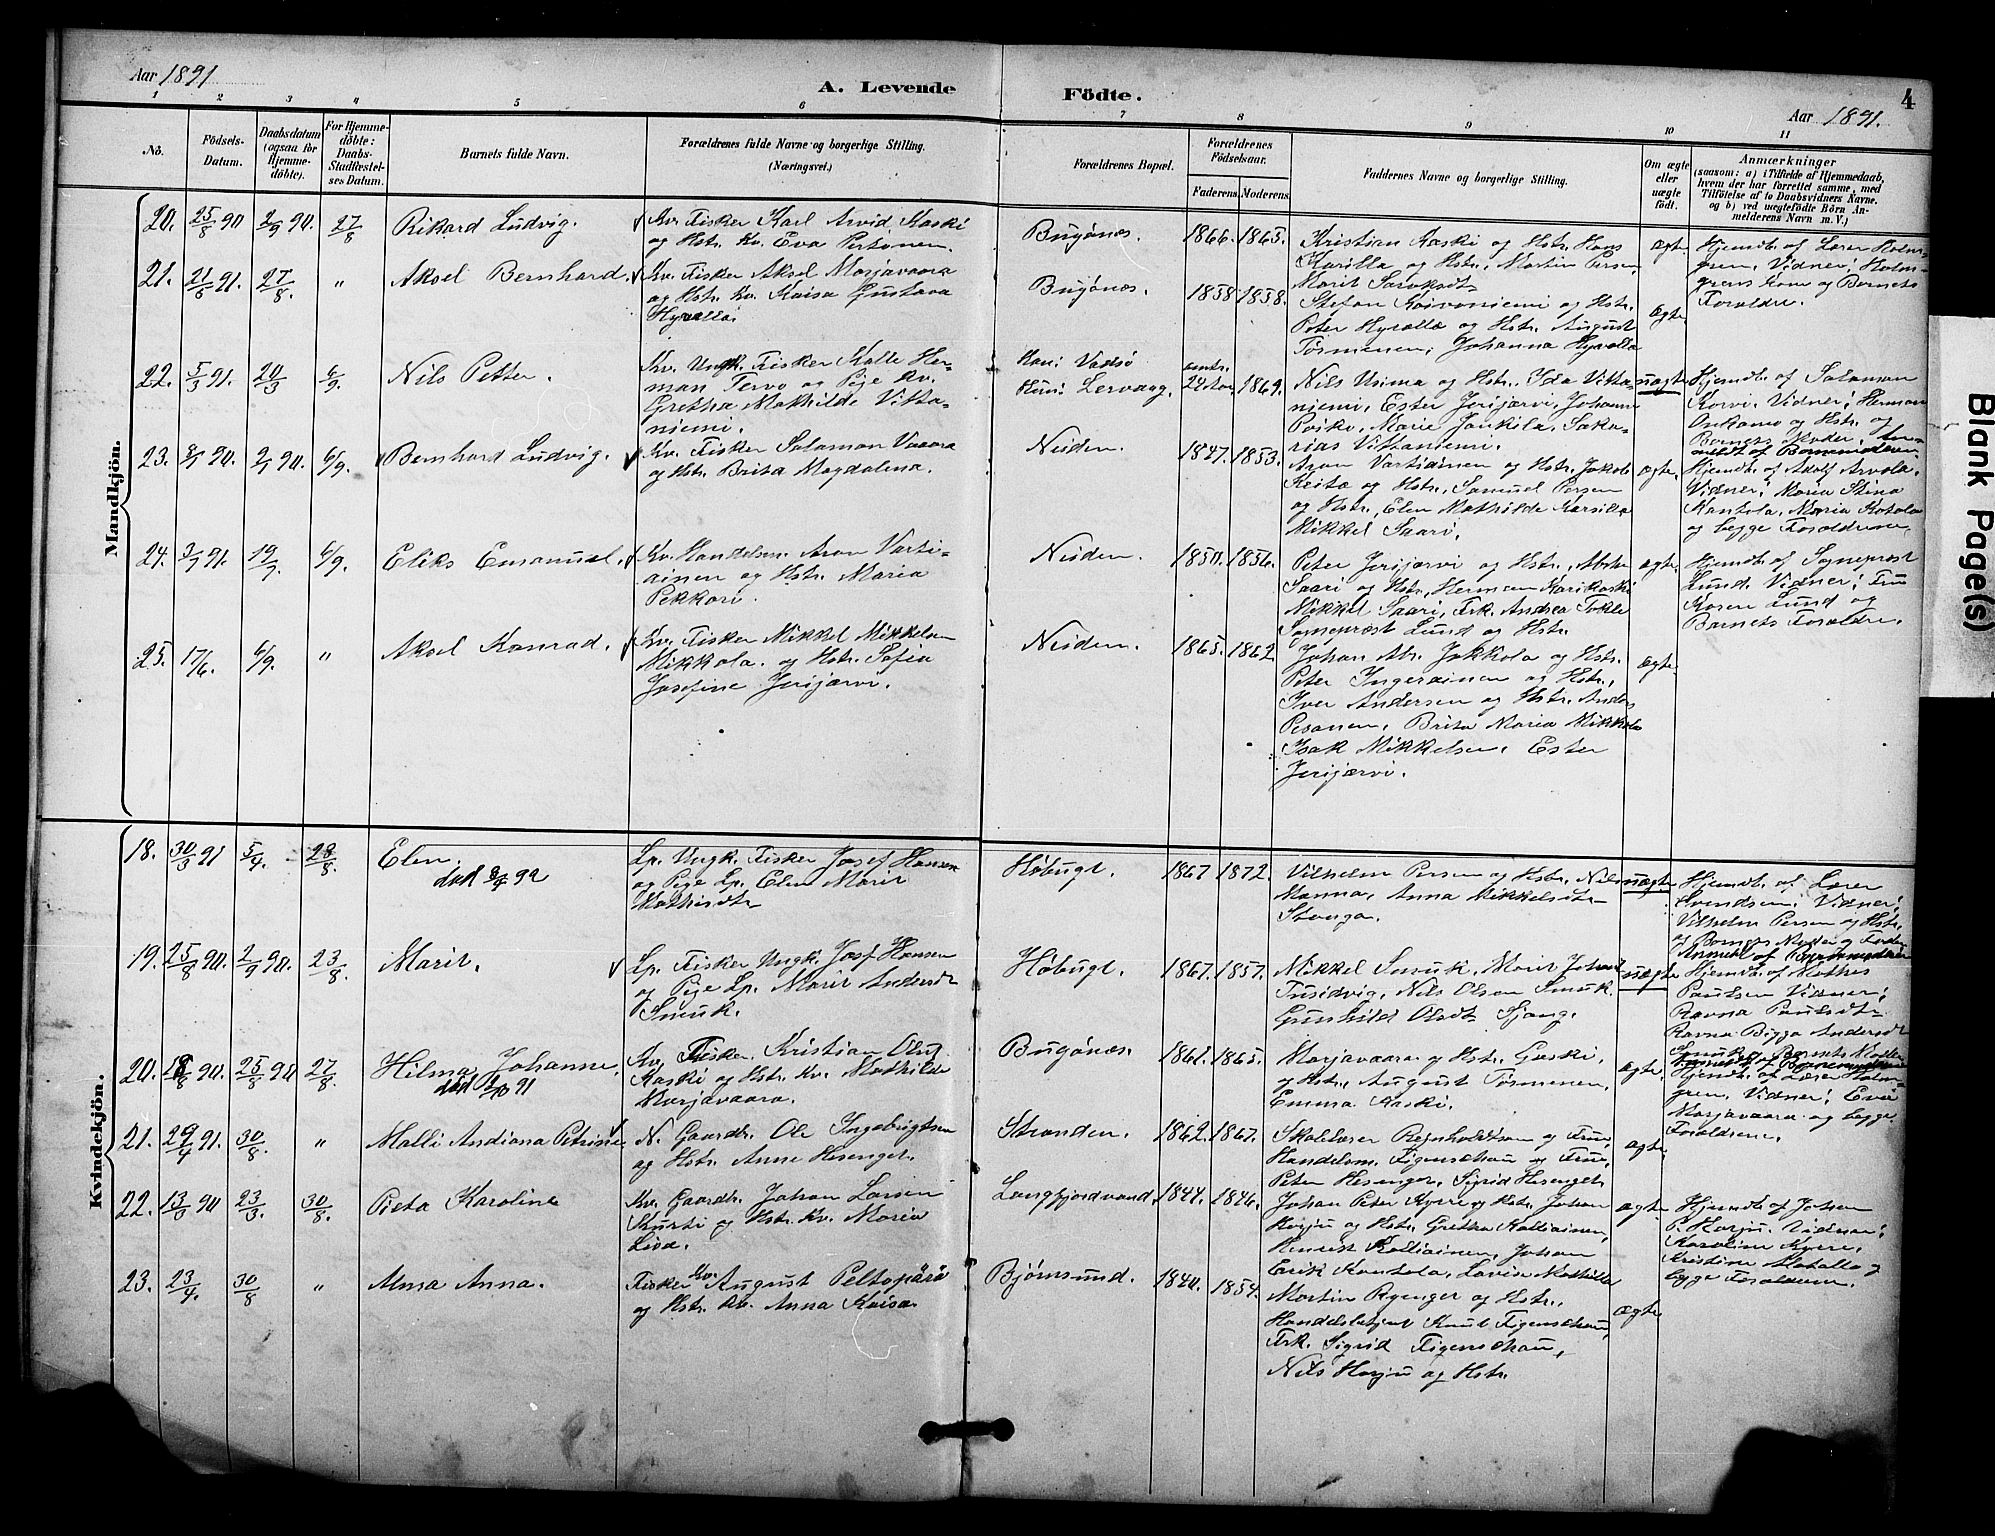 Aar 1891
A. Levende Födte.
Aar 1891.
4
1 2 3 4 5 6 7 8 9 10 11
No.
Födsels-
Datum.
Daabsdatum
(ogsaa for
Hjemme-
döbte).
For Hjemme-
döbte:
Daabs-
Stadfæstel-
ses Datum.
Barnets fulde Navn.
Forældrenes fulde Navne og borgerlige Stilling.
(Næringsvei.)
Forældrenes Bopæl.
Forældrenes
Födselsaar.
Faderens. Moderens.
Faddernes Navne og borgerlige Stilling.
Om ægte
eller
uægte
födt.
Anmærkninger
(saasom: a) i Tilfælde af Hjemmedaab,
hvem der har forrettet samme, med
Tilföielse af to Daabsvidners Navne.
og b) ved uægtefödte Börn An-
melderens Navn m. V.)
Mandkjön.
20. 25/8 90 2/9 90. 27/8
Rikard Ludvig.
Kv. Fisker Karl Arvid Kaski
og Hstr. Kv. Eva Pertonen.
Bugönæs. 1866. 1863.
Kristian Kaski og Hstr. Hans
Karilla og Hstr., Martin Persen,
Marit
ægte.
Hjemdb. af Lærer Holm-
gren. Vidner: Holm-
grens Kone og Barnets
Forældre.
21. 21/6 91. 27/8. "
Aksel Bernhard.
Kv. Fisker Aksel Marjavaara
og Hstr. Kv. Kaisa Gustava
Hyrällä.
Bugönæs. 1858 1858.
Stefan Koivoniemi og Hstr.
Peter Hyrällä og Hstr. August
Törmenen, Johanna Hyrälla
ægte.
22. 5/3 91. 20/3 6/9.
Nils Petter.
Kv. Ungk. Fisker Kalle Her-
man Tervo og Pige Kv.
Gretha Mathilde Vitta-
niemi.
Han: Vadsö
Hun: Lervaag.
omtr. 1869.
Nils Usima og Hstr. Ida Vitta-
niemi, Ester Jerijærvi, Johannes
Poiko, Maria Jankila, Saka-
rias Vittaniemi.
uægte
Hjemdb. af Salamon
Korvi. Vidner: Herman
Onkamo og Hstr. og
Barnets Moder. An-
meldt af Barnemoderen.
23. 90. 90. 6/9.
Bernhard Ludvig.
Kv. Fisker Salamon Vaaara
og Hstr. Brita Magdalena.
Neiden. 1847. 1853.
Aron Vartiainen og Hstr. Jakob
Keitæ og Hstr., Samuel Persen
og Hstr., Elen Mathilde Karsika
Mikkel Saari.
ægte.
Hjemdb. af Adolf Arvola.
Vidner: Maria Stina
Kantola, Maria Katola
og begge Forældrene.
24. 3/7 91. 19/7. 6/9.
Eliks Emanuel.
Kv. Handelsm. Aron Varti-
ainen og Hstr. Maria
Pekkari.
Neiden. 1850. 1856.
Peter Jerijærvi og Hstr., Abram
Saari og Hstr., Herman Karikoski
Mikkel Saari, Frk. Andrea Fokle
Sogneprest Lund og Hstr.
ægte.
Hjemdb. af Sogneprest
Lund. Vidner: Fru
Kosen Lund og
Barnets Forældre.
25. 17/6. 6/9. "
Aksel Konrad.
Kv. Fisker Mikkel Mikkelsen
Mikkola. og Hstr. Sofia
Josefine Jerijærvi.
Neiden. 1865. 1862
Johan Ab. Jokkola og Hstr.
Peter Ingeräinen og Hstr.,
Iver Andersen og Hstr. Anders
Pesonen, Brita Maria Mikkola
Isak Mikkelsen, Ester
Jerijærvi.
ægte.
Kvindekjön.
18. 30/3 91 5/4. 28/8
Elen.
död 92
Lp. Ungk. Fisker Josef Hansen
og Pige Lp. Elen Marit
Mathisdtr
Höbugt. 1867 1872.
Vilhelm Persen og Hstr. Nils
Manna, Anna Mikkelsdtr
Stvenga.
uægte
Hjemdb. af Lærer
Svendsen. Vidner:
Vilhelm Persen og Hstr.
og Barnets Moder og Fader
Anmeldt af Barnemoderen
19. 25/8 90. 2/9 90. 23/8
Marit.
Lp. Fisker Ungk. Josef Hansen
og Pige Lp. Marit Andersdtr
Smuk.
Höbugt. 1867. 1857.
Mikkel Smuk, Marit Johans.
Tusidvig, Nils Olsen Smuk.
Gunhild Olsdtr Sjang.
uægte
Hjemdb. af Mathis
Paulsen Vidner:
Ravna Paulsdtr
Ravna Bigga Andersdtr
Smuk og Barnets Moder
20. 90. 25/8 90 27/8
Hilma Johanne.
död 91
Kv. Fisker Kristian Oluf
Kaski og Hstr. Kv. Mathilde
Marjavaara.
Bugönæs. 1861. 1865.
Marjavaara og Hstr. Kaski.
og Hstr., August Törmenen,
Emma Kaski.
ægte.
Hjemdb. af Lærer Holm-
gren. Vidner: Eva
Marjavaara og begge
Forældrene.
21. 29/4 91. 30/8 "
Malli Andiana Petrine
N. Gaardb. Ole Ingebrigtsen
og Hstr. Anne Hesenget.
Stranden. 1862. 1867.
Skolelærer Reinholdtsen og Frue,
Handelsm. Figenschau og Frue,
Peter Hesenget, Sigrid Hesenget.
ægte.
22. 13/3 90 23/3. 30/8.
Pieta Karoline
Kv. Gaardb. Johan Larsen
Kurti og Hstr. Kv. Maria
Lisa.
Langfjordvand. 1844. 1846.
Johan Peter Kyrre og Hstr. Johan
Harju og Hstr., Gretha Kalliainen,
Henrik Kalliainen, Johan
Erik Kantola, Lovisa Mathilda
ægte.
Hjemdb. af Johan
P. Harju. Vidner:
Karoline Kyrre,
Kristine Katalla og
begge Forældrene.
23. 23/4. 30/8 "
Alma Anna.
Fisker Kv. August Peltopärä
og Hstr. Kv. Anna Kaisa.
Björnsund. 1840. 1854.
Martin Ryenger og Hstr.,
Handelsbetjent Knut Figenschau,
Frk. Sigrid Figenschau,
Nils Harju og Hstr.
ægte
Blank Page(s)